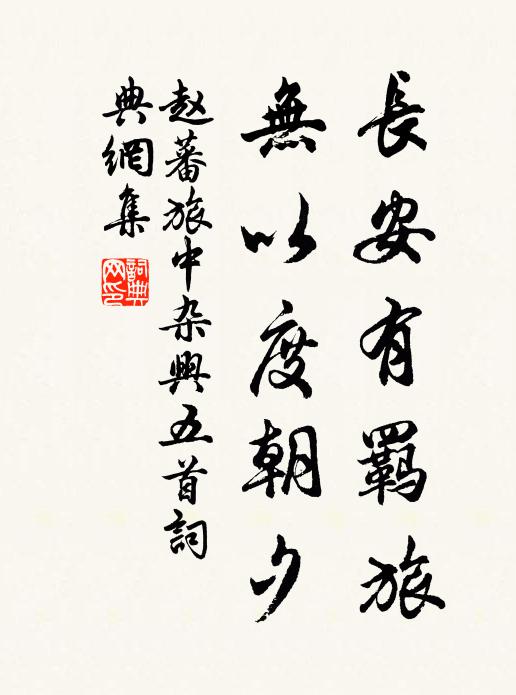 長安有羈旅
無以度朝夕
赵蕃旅中杂興五首詞
典網集
詞典
网印